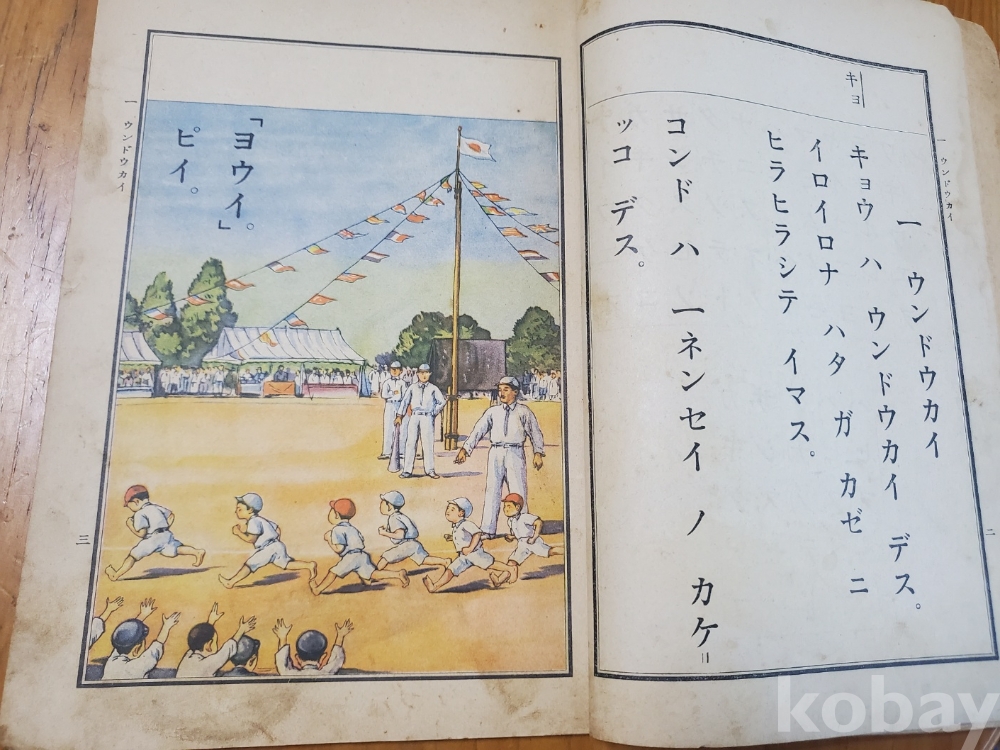 キョ
一 ウンドウカイ
二
一 ウンドウカイ
キョウ ハ ウンドウカイ デス。
イロイロナ ハタ ガ カゼ ニ
ヒラヒラシテ イマス。
コンド ハ 一ネンセイ ノ カケ
ッコ デス。
「ヨウイ」。
ピイ。
一 ウンドウカイ
三
kobay